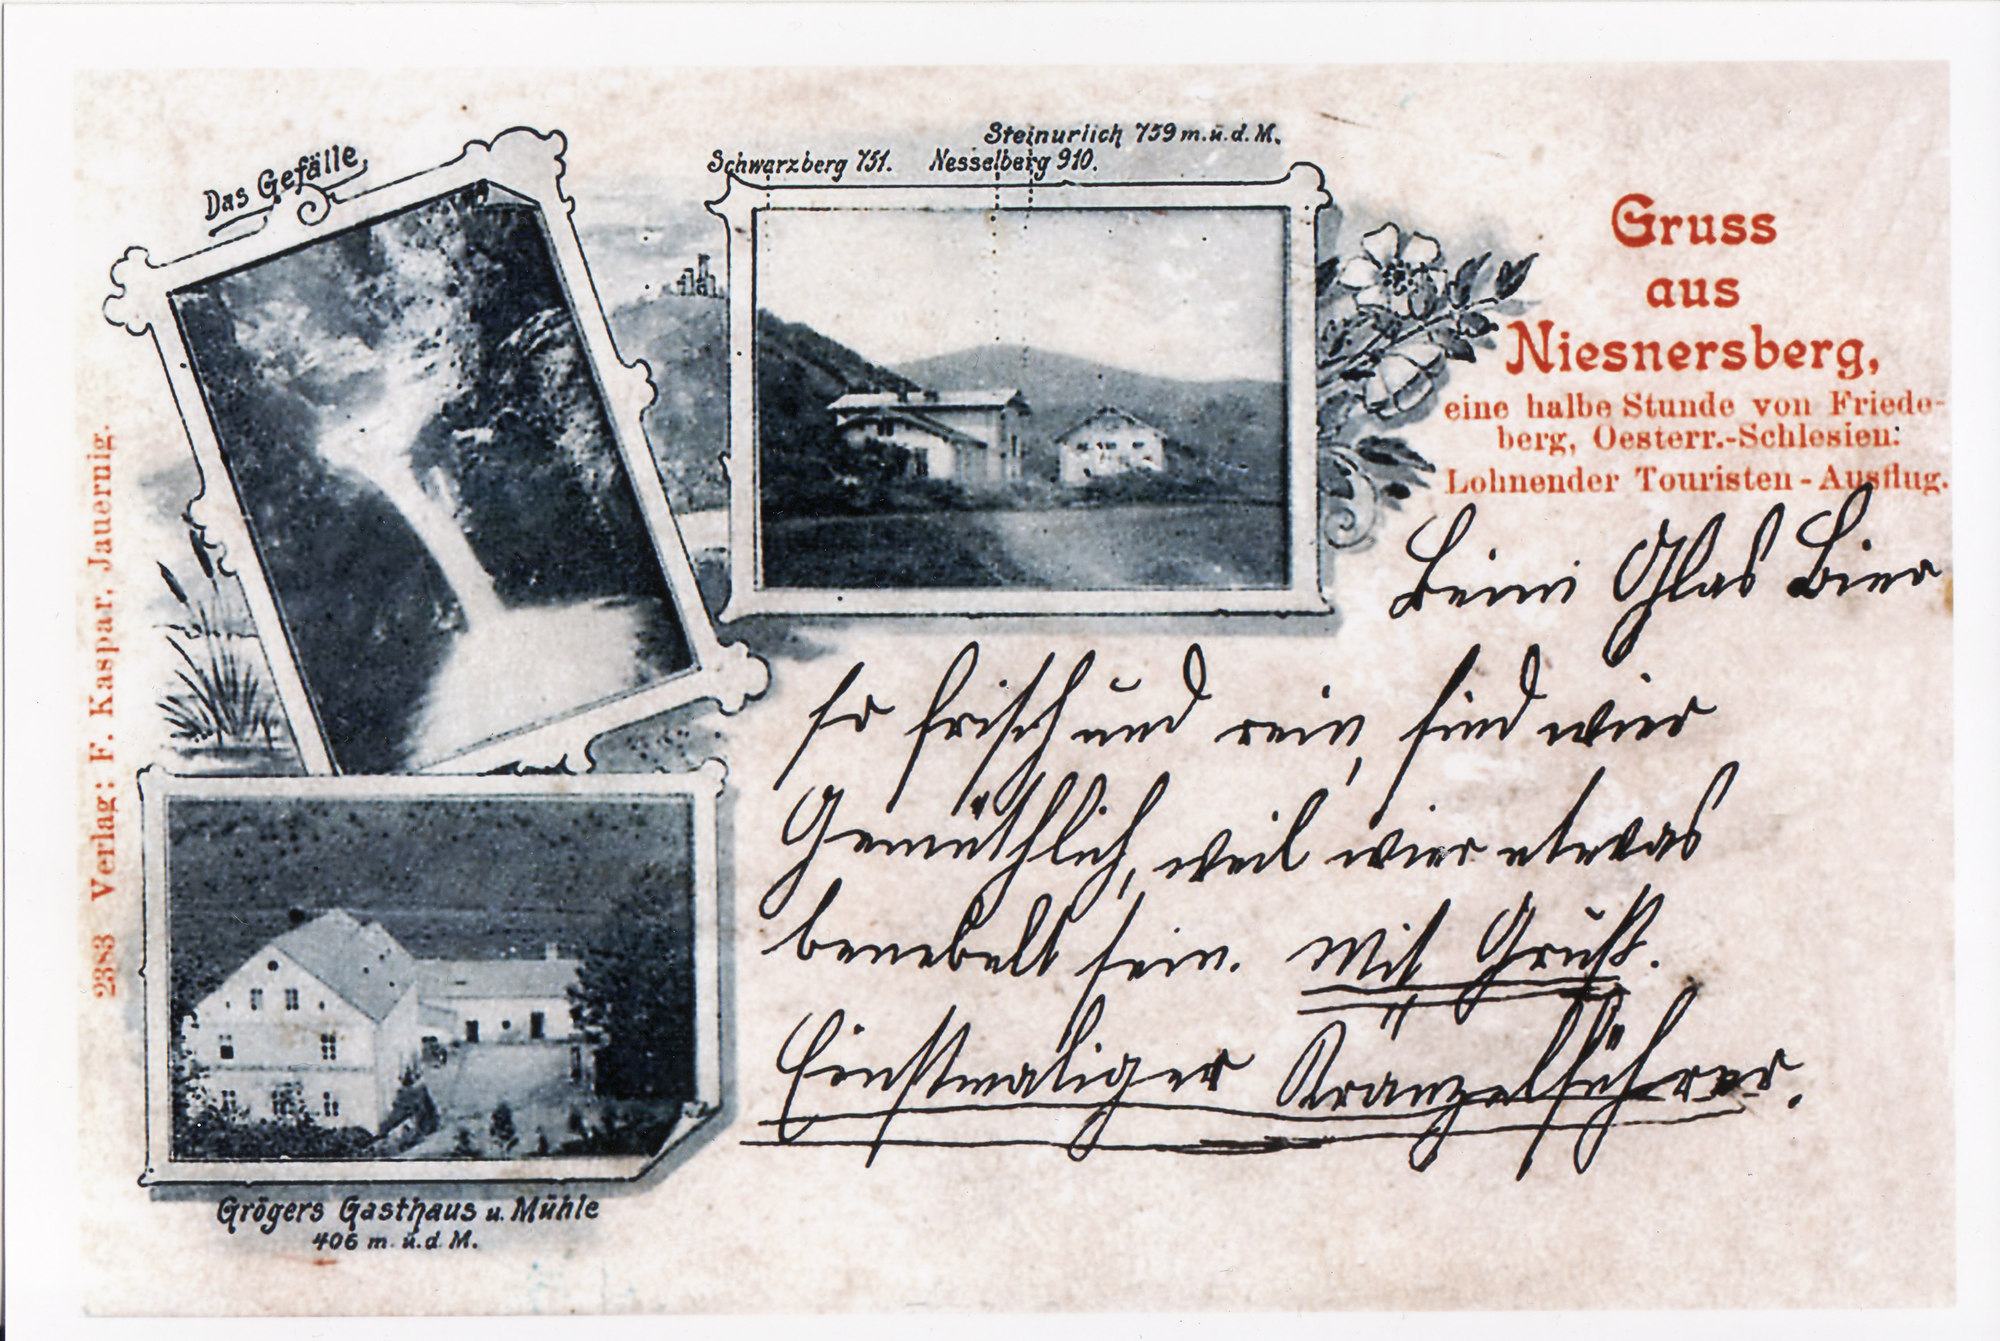 Das Gefälle,
Steinurlich 759 m. ü. d. M.
Schwarzberg 751. Nesselberg 910.
Gruss
aus
Niesnersberg,
eine halbe Stunde von Friede-
berg, Oesterr.-Schlesien.
Lohnender Touristen-Ausflug.
Beim Glas Bier
so frisch und rein, sind wier
Gemüthlich, weil wier etwas
benebelt sein. Mit Gruß.
Einstmaliger Kränzelführer.
Grögers Gasthaus u. Mühle
406 m. ü. d. M.
2383 Verlag: F. Kaspar, Jauernig.